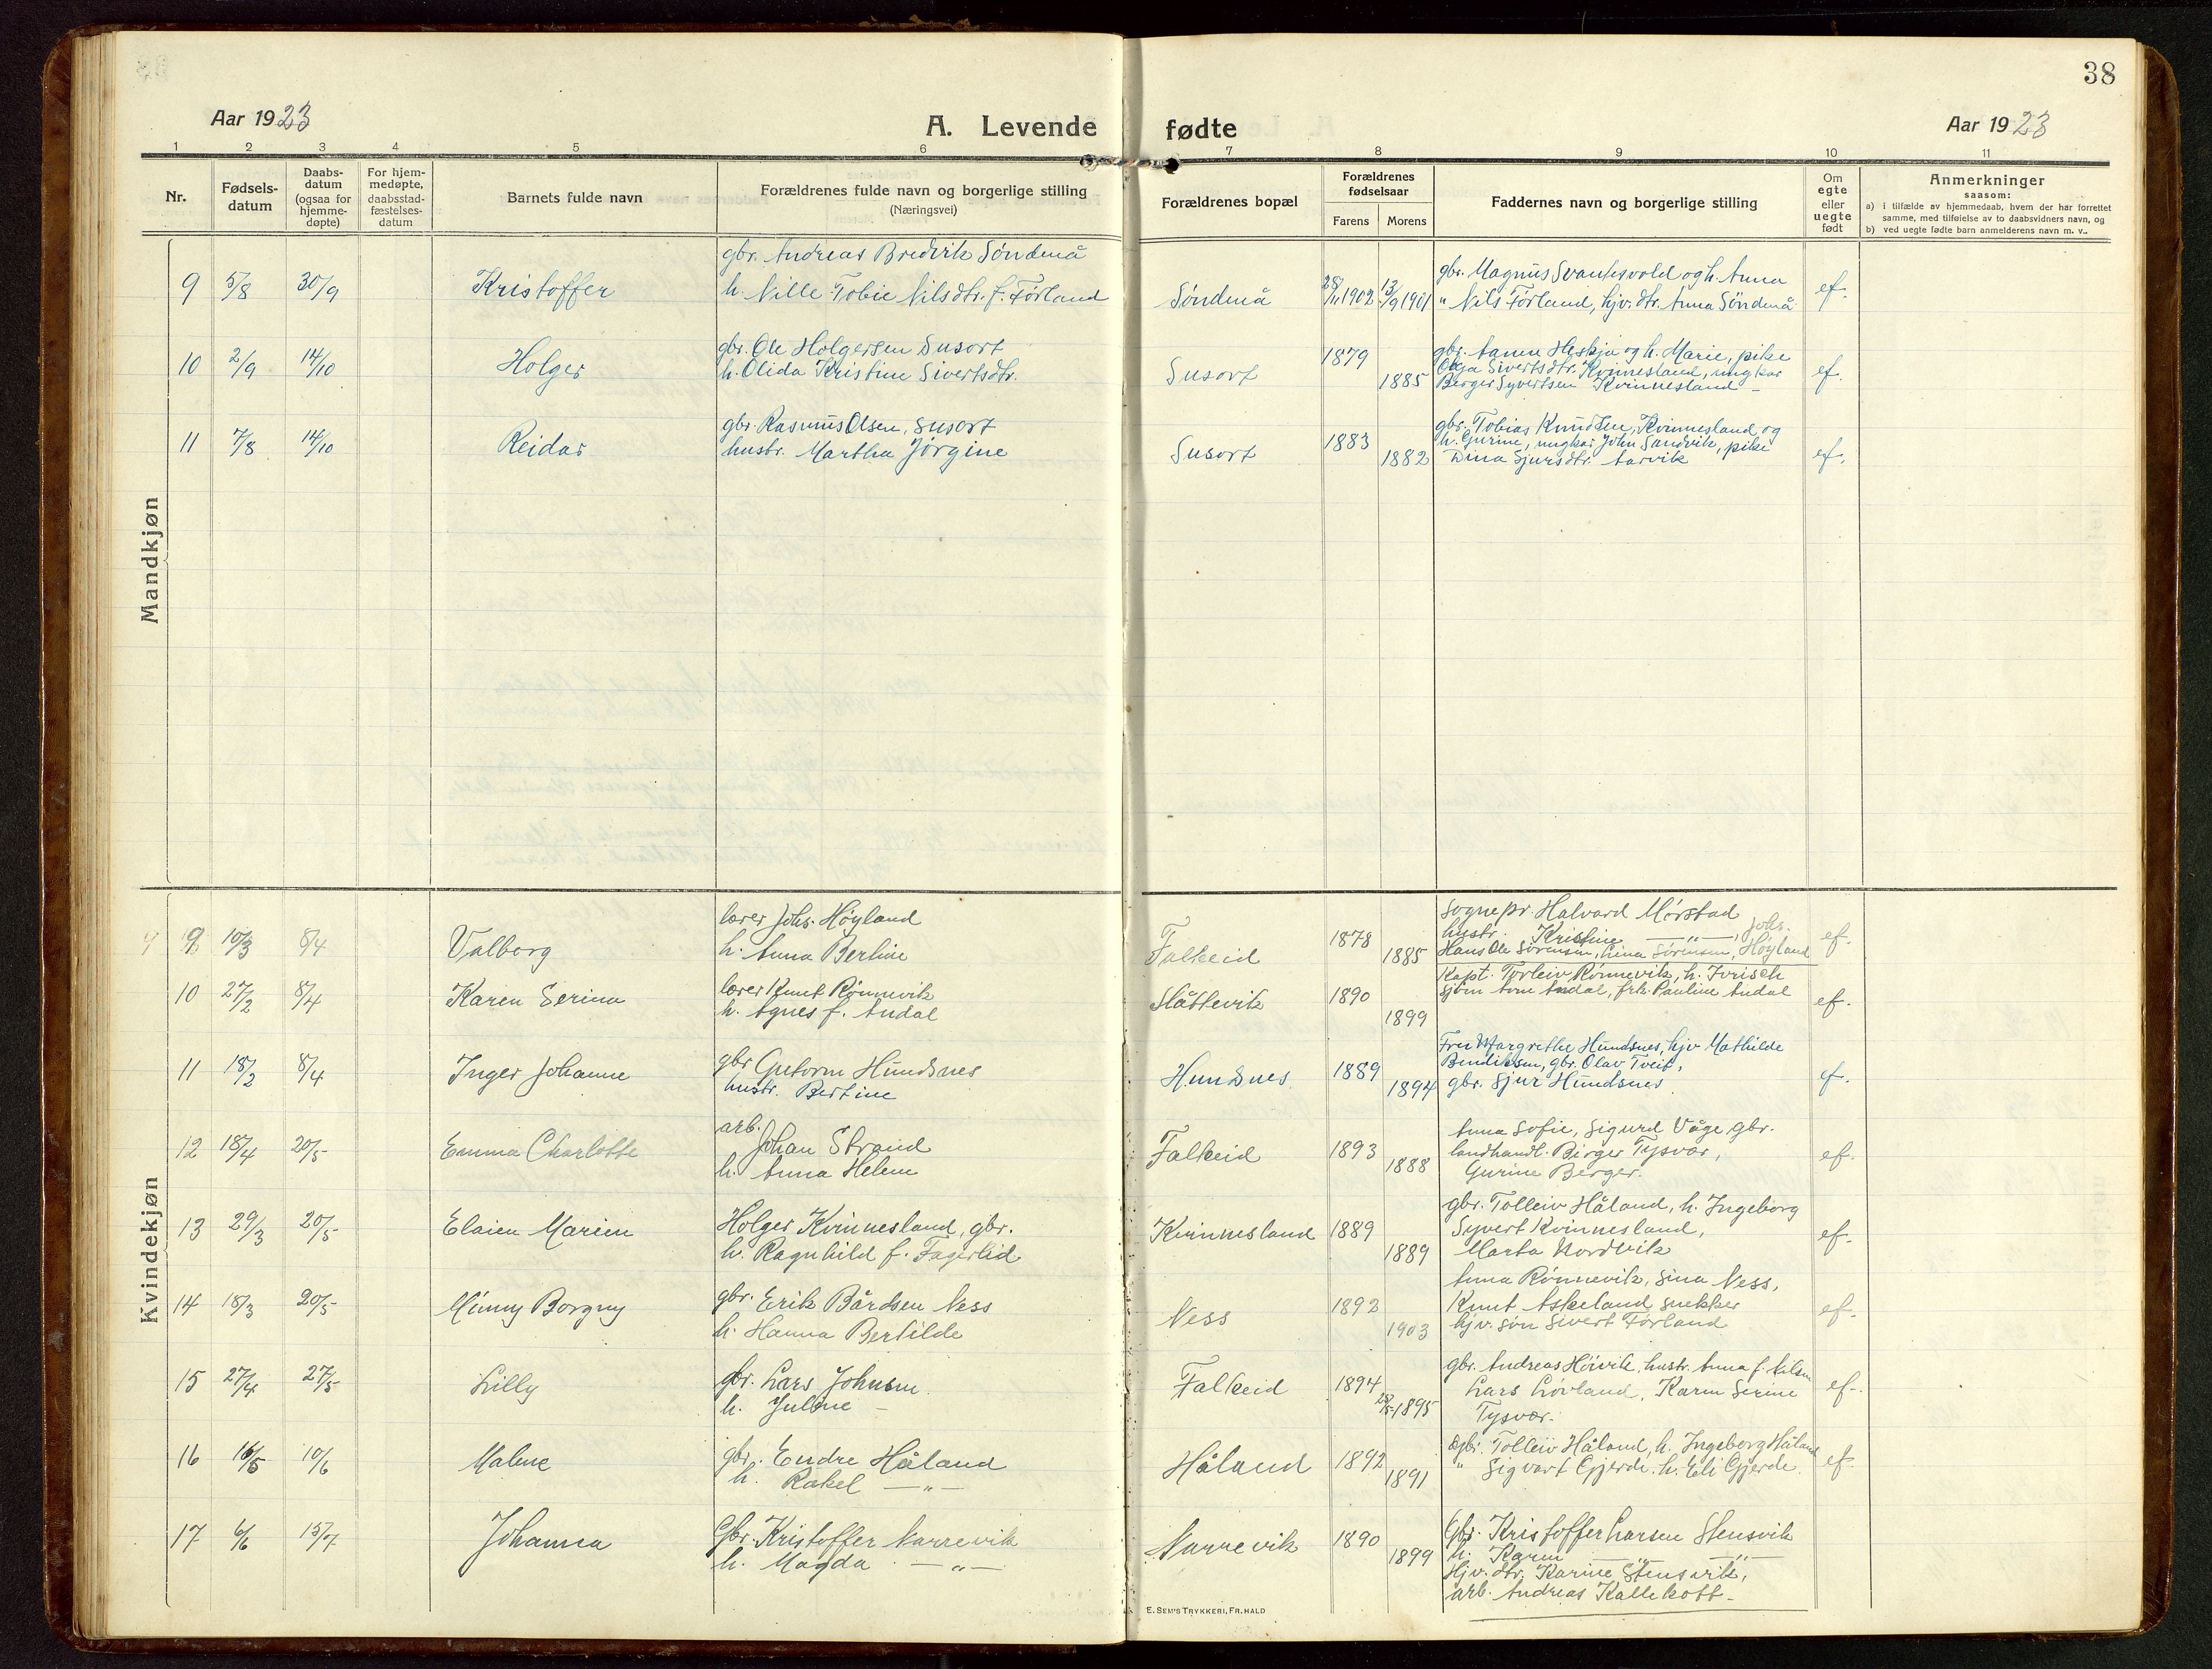 38
Aar 1923
A. Levende fødte
Aar 1923
1 2 3 4 5 6 7 8 9 10 11
Nr.
Fødsels-
datum
Daabs-
datum
(ogsaa for
hjemme-
døpte)
For hjem-
medøpte,
daabsstad-
fæstelses-
datum
Barnets fulde navn
Forældrenes fulde navn og borgerlige stilling
(Næringsvei)
Forældrenes bopæl
Forældrenes
fødselsaar
Farens Morens
Faddernes navn og borgerlige stilling
Om
egte
eller
uegte
født
Anmerkninger
saasom:
a) i tilfælde av hjemmedaab, hvem der har forrettet
samme, med tilføielse av to daabsvidners navn, og
b) ved uegte fødte barn anmelderens navn m. v..
Mandkjøn
9 5/8 30/9 Kristoffer
gbr. Andreas Bredvik Søndenå
h. Nille Tobie Nilsdtr. f. Førland
Søndenå
28/11 1902 13/9 1901
gbr. Magnus Svantesvold og h. Anna
" Nils Førland, hjv. dtr. Anna Søndenå
ef.
10 2/9 14/10 Holger
gbr. Ole Holgersen Susort
h. Olida Kristine Sivertsdtr.
Susort
1879
1885
gbr. Aanen Heskja og h. Marie, pike
Olga Sivertsdtr. Kvinnesland, ungkar
Berger Syvertsen Kvinnesland -
ef.
11 7/8 14/10 Reidar
gbr. Rasmus Olsen, Susort
hustr. Martha Jørgine
Susort
1883
1882
gbr. Tobias Knudsen, Kvinnesland og
h. Gurine, ungkar John Sandvik, pike
Dina Sjursdtr. Aarvik
ef.
Kvindekjøn
9 9 10/3 8/4 Valborg
lærer Johs. Høyland
h. Anna Bertine
Falkeid
1878
1885
Sognepr. Halvard Mørstad
hustr. Kristine —"—, Johs.
Hans Ole Sørensen, Lina Sørensen, Høyland
ef.
10 27/2 8/4 Karen Serina
lærer Knut Rønnevik
h. Agnes f. Andal
Slåttevik
1890
1899
Kapt. Torleiv Rønnevik, h.
sjøm Arne Andal, frk. Pauline Andal
ef.
11 18/2 8/4 Inger Johanne
gbr Gutorm Hundsnes
hustr. Bertine
Hundsnes
1889
1894
Fru Margrethe Hundsnes, hjv Mathilde
Bendiksen, gbr. Olav Tveit,
gbr. Sjur Hundsnes
ef.
12 18/4 20/5 Emma Charlotte
arb.
Johan Strand
h. Anna Helene
Falkeid
1893
1888
Anna Sofie, Sigurd Våge, gbr.
landhandl. Birger Tysvær,
Gurine Berger.
ef.
13 29/3 20/5 Elaien Marien
Holger Kvinnesland, gbr.
h. Ragnhild f. Fagerlid
Kvinnesland
1889
1889
gbr. Tolleiv Håland, h. Ingeborg
Syvert Kvinnesland,
Marta Nordvik
ef.
14 18/3 20/5 Minny Borgny
gbr. Erik Bårdsen Ness
h. Hanna Bertilde
Ness
1892
1903
Anna Rønnevik, Sina Ness,
Knut Askeland snekker
hjv. søn Sivert Førland
ef.
15 27/4 27/5 Lilly
gbr. Lars Johnsen
h. Juline -
Falkeid
1894
28/5 1895
gbr. Andreas Høivik, hustr. Anna f. Nilsen
Lars Løvland, Karen Serine
Tysvær.
ef.
16 16/5 10/6 Malene
gbr. Endre Håland
h. Rakel —"—
Håland
1892
1891
gbr. Tolleiv Håland, h. Ingeborg Håland
" Sigvart Gjerde. h. Eli Gjerde.
ef.
17 6/6 15/7 Johanna
Gbr. Kristoffer Narrevik
h. Magda —"—
Narrevik
1890
1899
Gbr. Kristoffer Larsen Stensvik
h. Karen —"—
Hjv. dtr. Karine Stensvik,
arb. Andreas Kallekott -
E. SEM'S TRYKKERI, FR. HALD